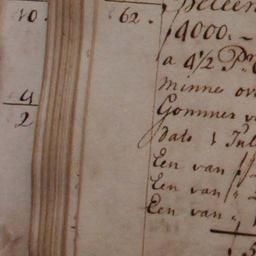 10.
4
2
62.
4000.-
a 4½ Pr
Minne
Gommer
dato 1 Jul
Een van
Een van
Een van